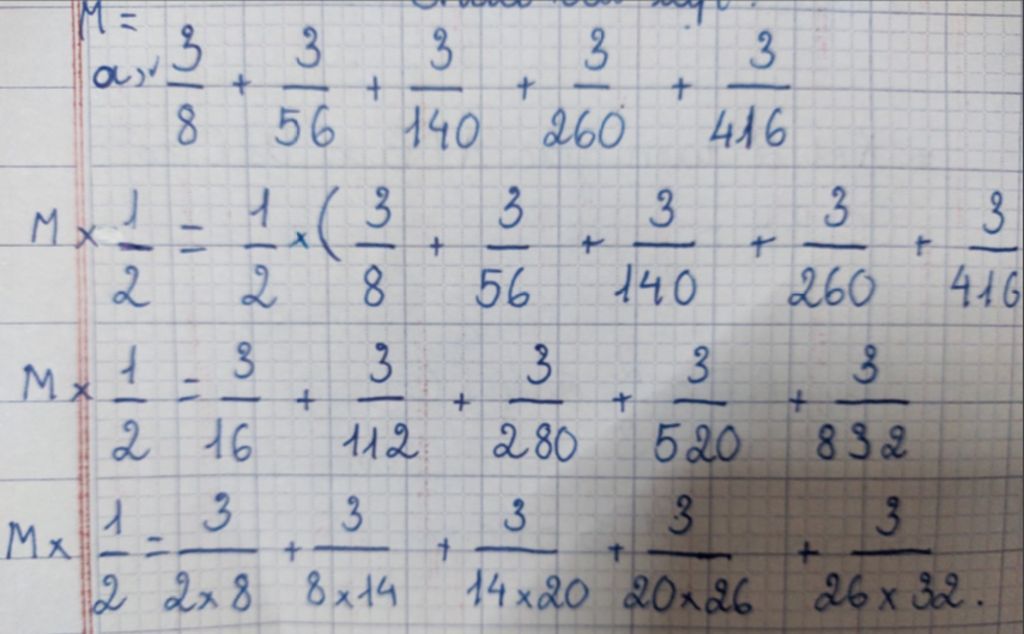 M =
a, 3/8 + 3/56 + 3/140 + 3/260 + 3/416
M × 1/2 = 1/2 × ( 3/8 + 3/56 + 3/140 + 3/260 + 3/416
M × 1/2 = 3/16 + 3/112 + 3/280 + 3/520 + 3/832
M × 1/2 = 3/2×8 + 3/8×14 + 3/14×20 + 3/20×26 + 3/26×32.